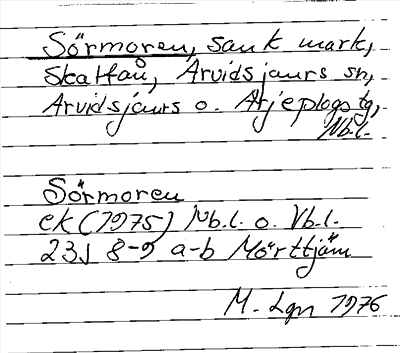 Sörmoren, sank mark,
Skattån, Arvidsjaurs sn,
Arvidsjaurs o. Arjeplogs tg,
Nb.l.
Sörmoren
ek (1975) Nb.l. o. Vb.l.
23J 8-9 a-b Mörttjärn
M. Lgn 1976